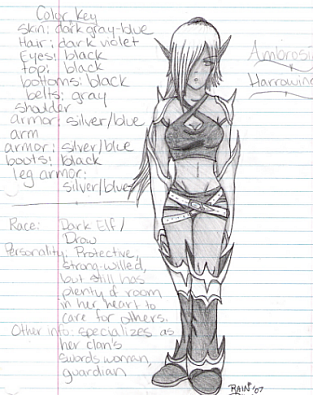 Color Key
skin: dark gray-blue
Hair: dark violet
Eyes: black
top: black
bottoms: black
belts: gray
shoulder
armor: silver/blue
arm
armor: silver/blue
boots: black
leg armor:
silver/blue
Ambrosia
Harrowind
Race: Dark Elf/
Drow
Personality: Protective,
strong-willed,
but still has
plenty of room
in her heart to
care for others.
Other info: specializes as
her clan's
swordswoman,
guardian
RAIN '07